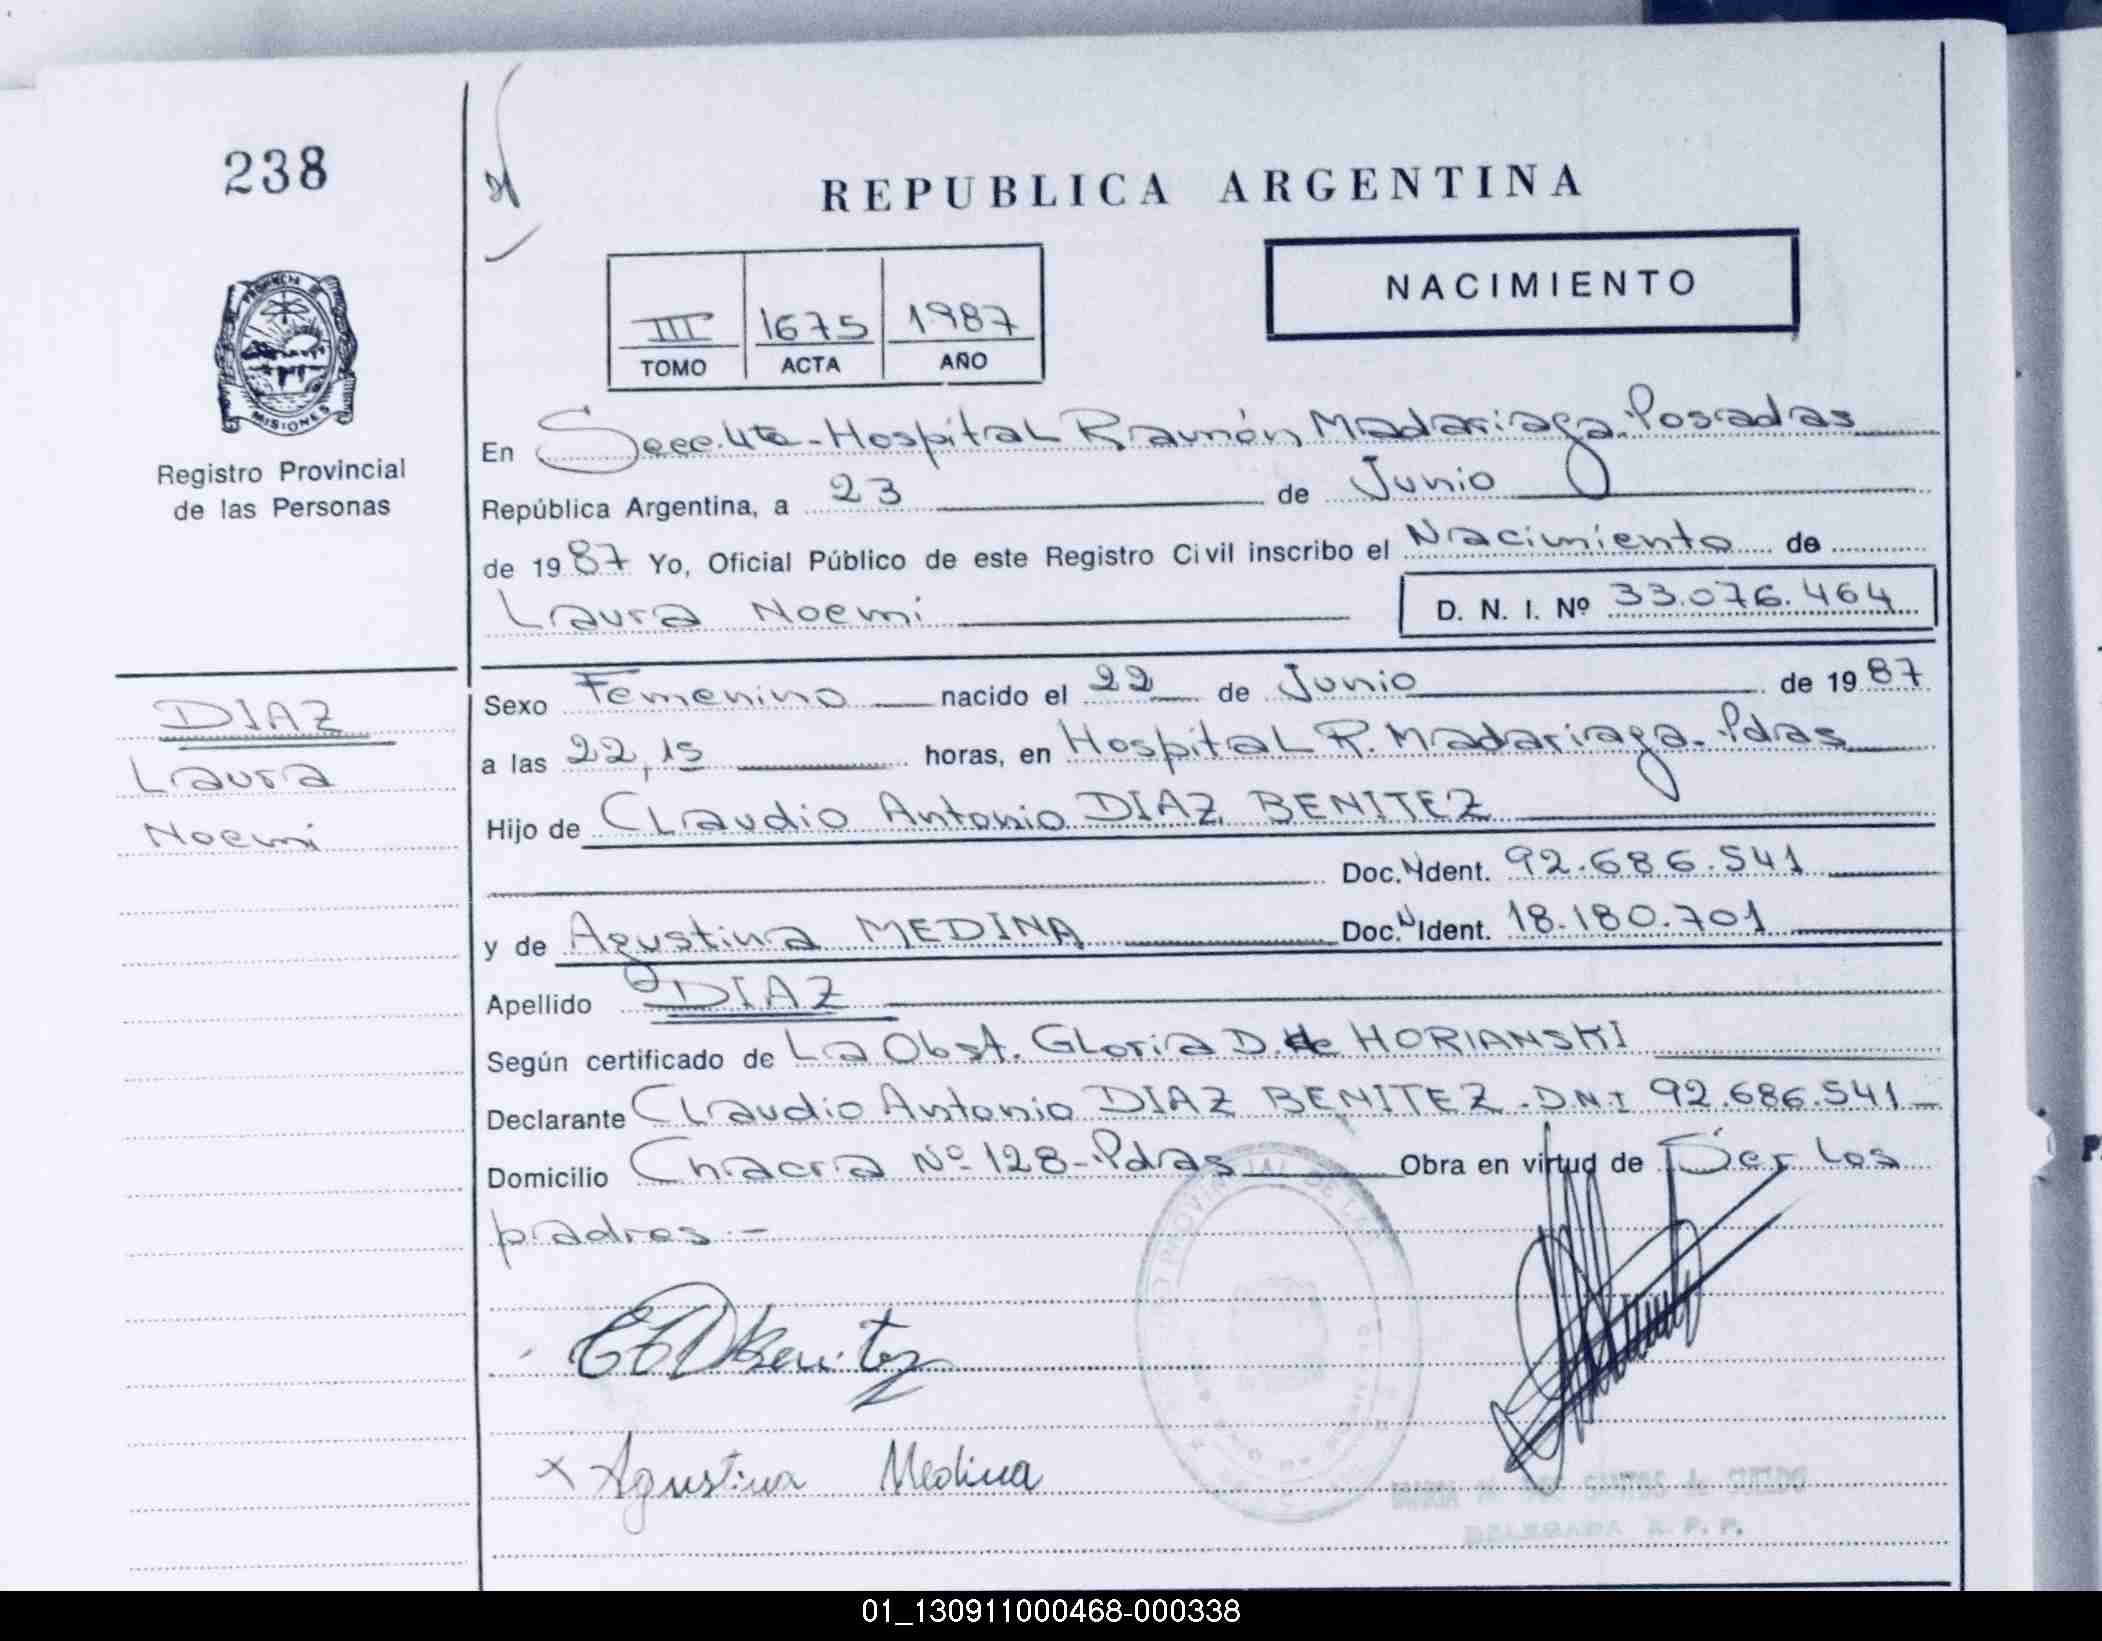 238
REPUBLICA ARGENTINA
NACIMIENTO
III 1675 1987
TOMO ACTA AÑO
PROVINCIA DE
MISIONES
Registro Provincial
de las Personas
En Secc. 4ta - Hospital Ramón Madariaga. Posadas
República Argentina, a 23 de Junio
de 1987 Yo, Oficial Público de este Registro Civil inscribo el Nacimiento de
Laura Noemi D. N. I. Nº 33.076.464
DIAZ
Laura
Noemi
Sexo Femenino nacido el 22 de Junio de 1987
a las 22,15 horas, en Hospital R. Madariaga. Pdas
Hijo de Claudio Antonio DIAZ BENITEZ
Doc. N Ident. 92.686.541
y de Agustina MEDINA Doc. N Ident. 18.180.701
Apellido DIAZ
Según certificado de La Obst. Gloria D. de HORIANSKI
Declarante Claudio Antonio DIAZ BENITEZ. D.N.I 92.686.541
Domicilio Chacra Nº 128 - Pdas Obra en virtud de Ser los
padres. -
Benitez
x Agustina Medina
DOS SANTOS de CUELDO
DELEGADA R. P. P.
01_130911000468-000338